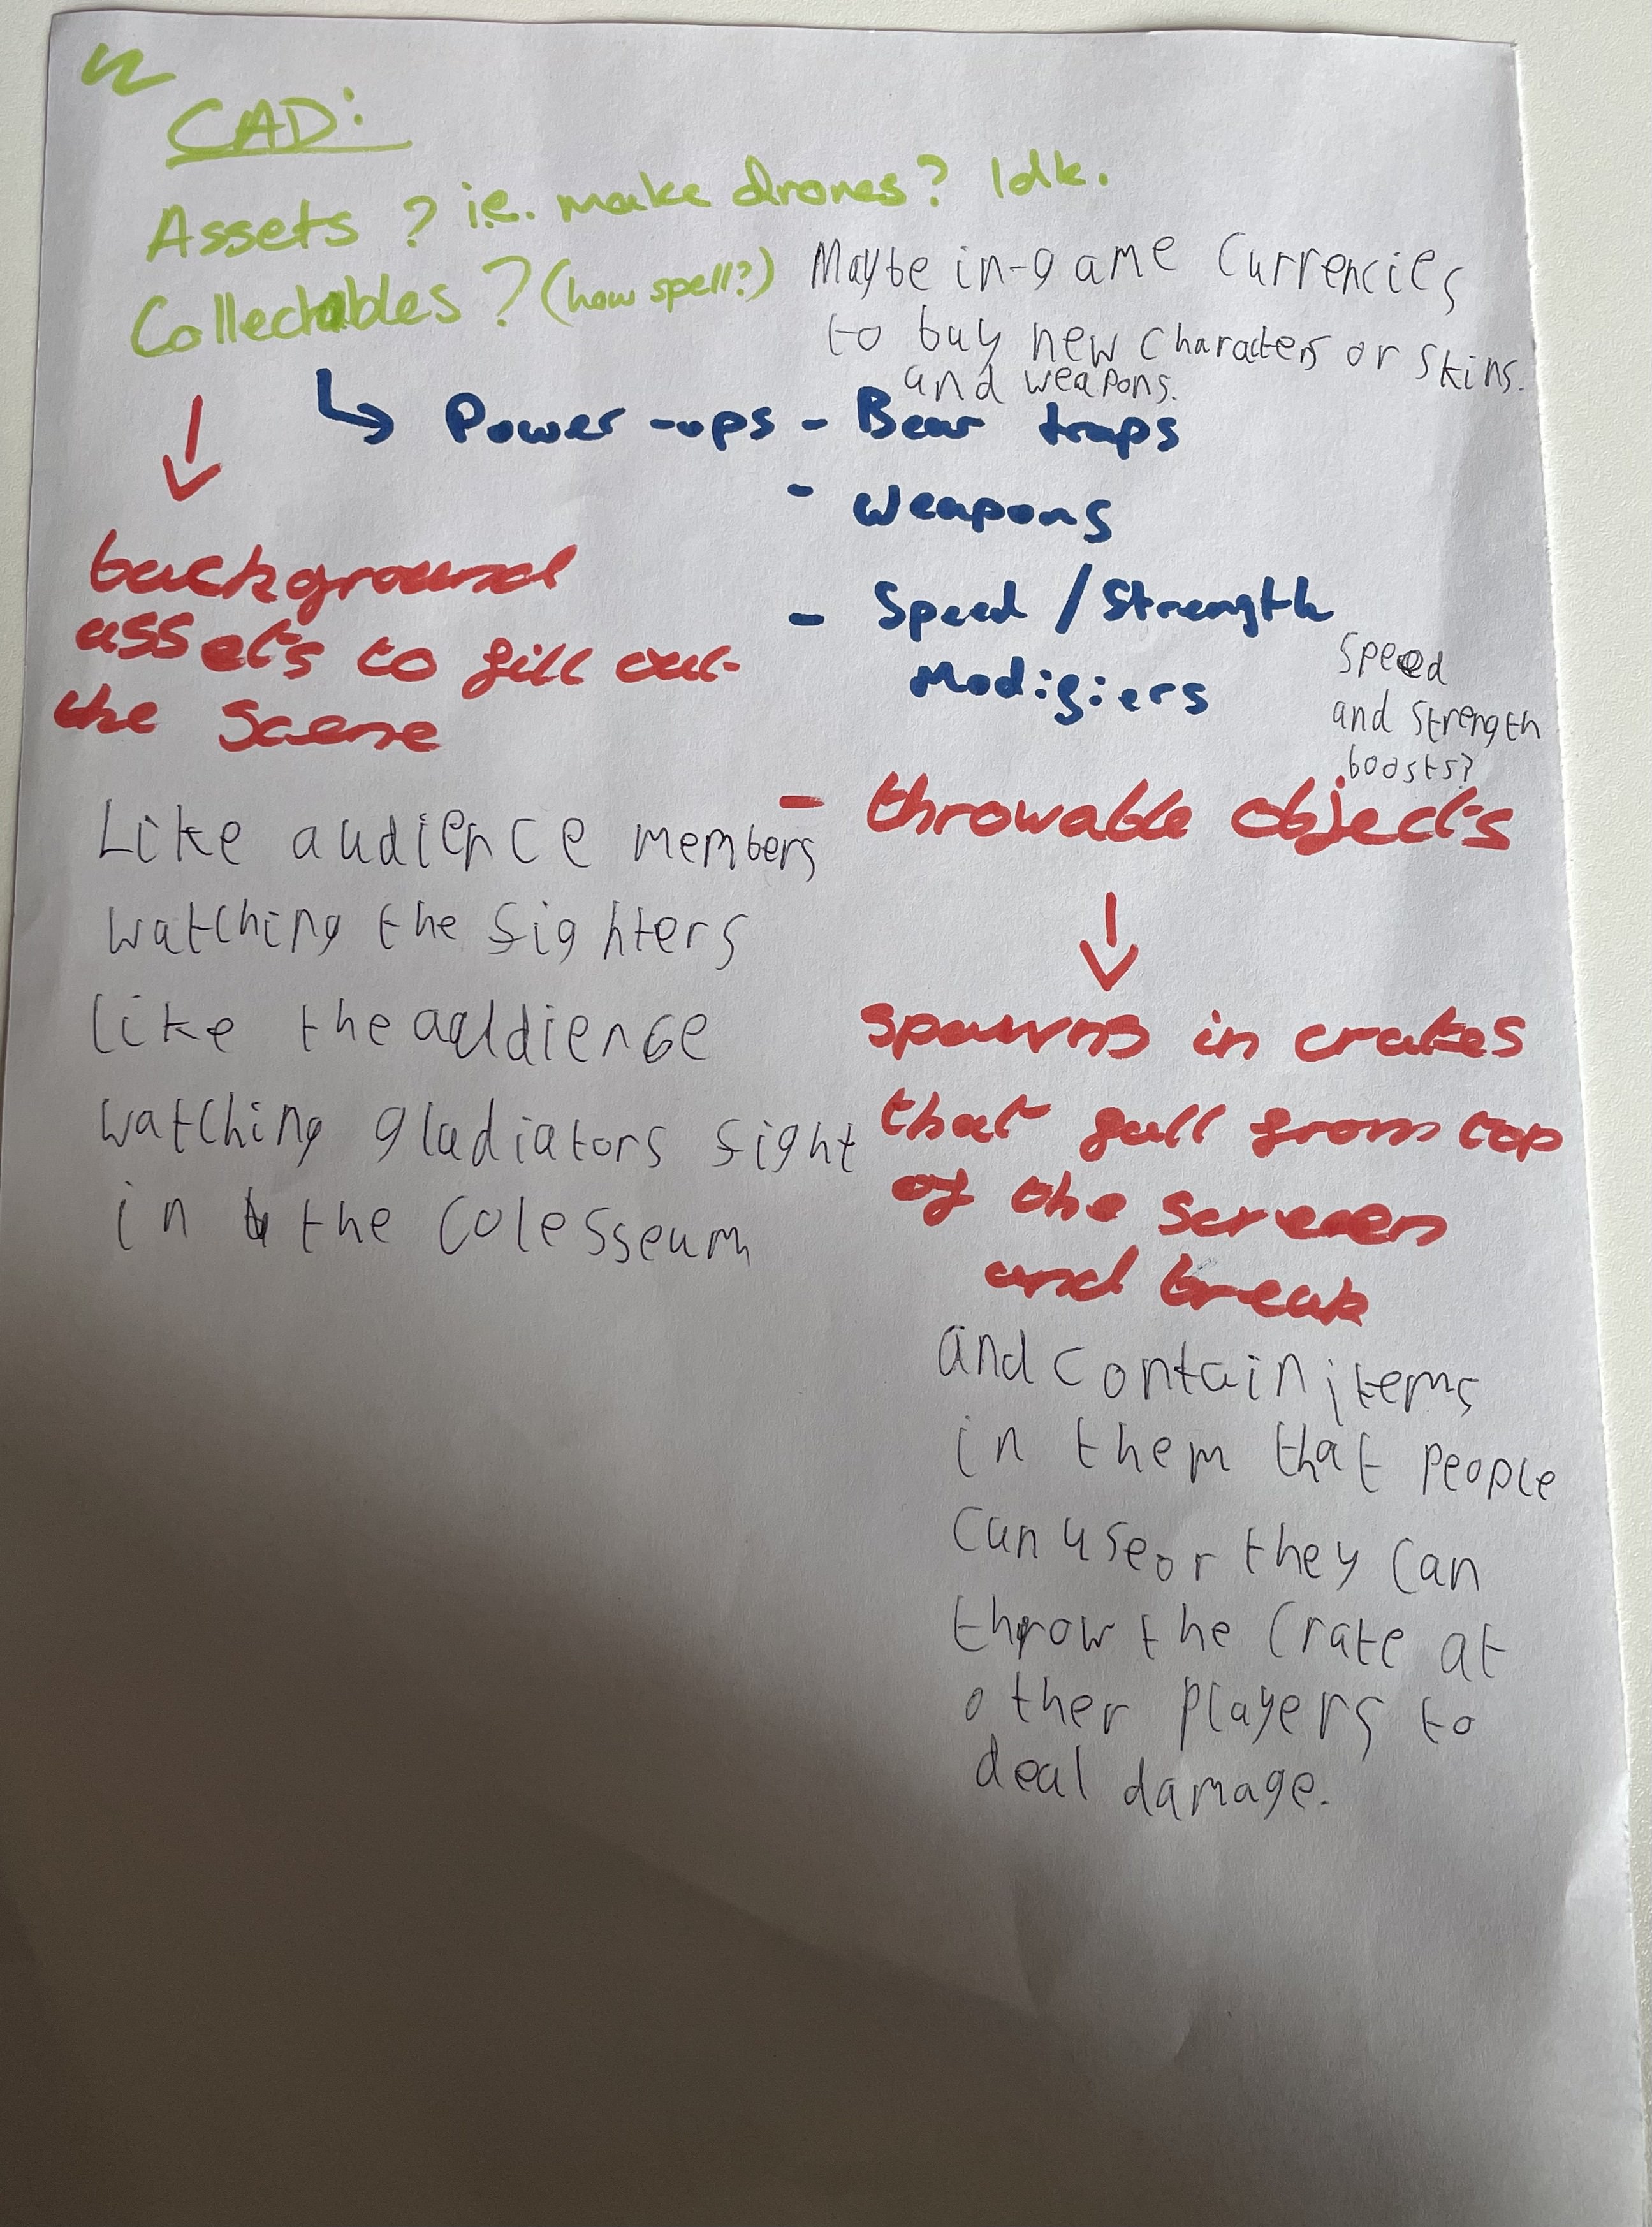 CAD:
Assets ? i.e. make drones? Idk.
Collectables ? (how spell?)
Maybe in-game Currencies
to buy new characters or skins.
and weapons.
Power-ups - Bear traps
- Weapons
- Speed / Strength
Modifiers
Speed
and strength
boosts?
background
assets to fill out
the scene
Like audience members
watching the fighters
like the auddience
watching gladiators fight
in the Colesseum
- throwable objects
spawns in crates
that fall from top
of the screen
and break
and contain items
in them that people
can use or they can
throw the crate at
other players to
deal damage.